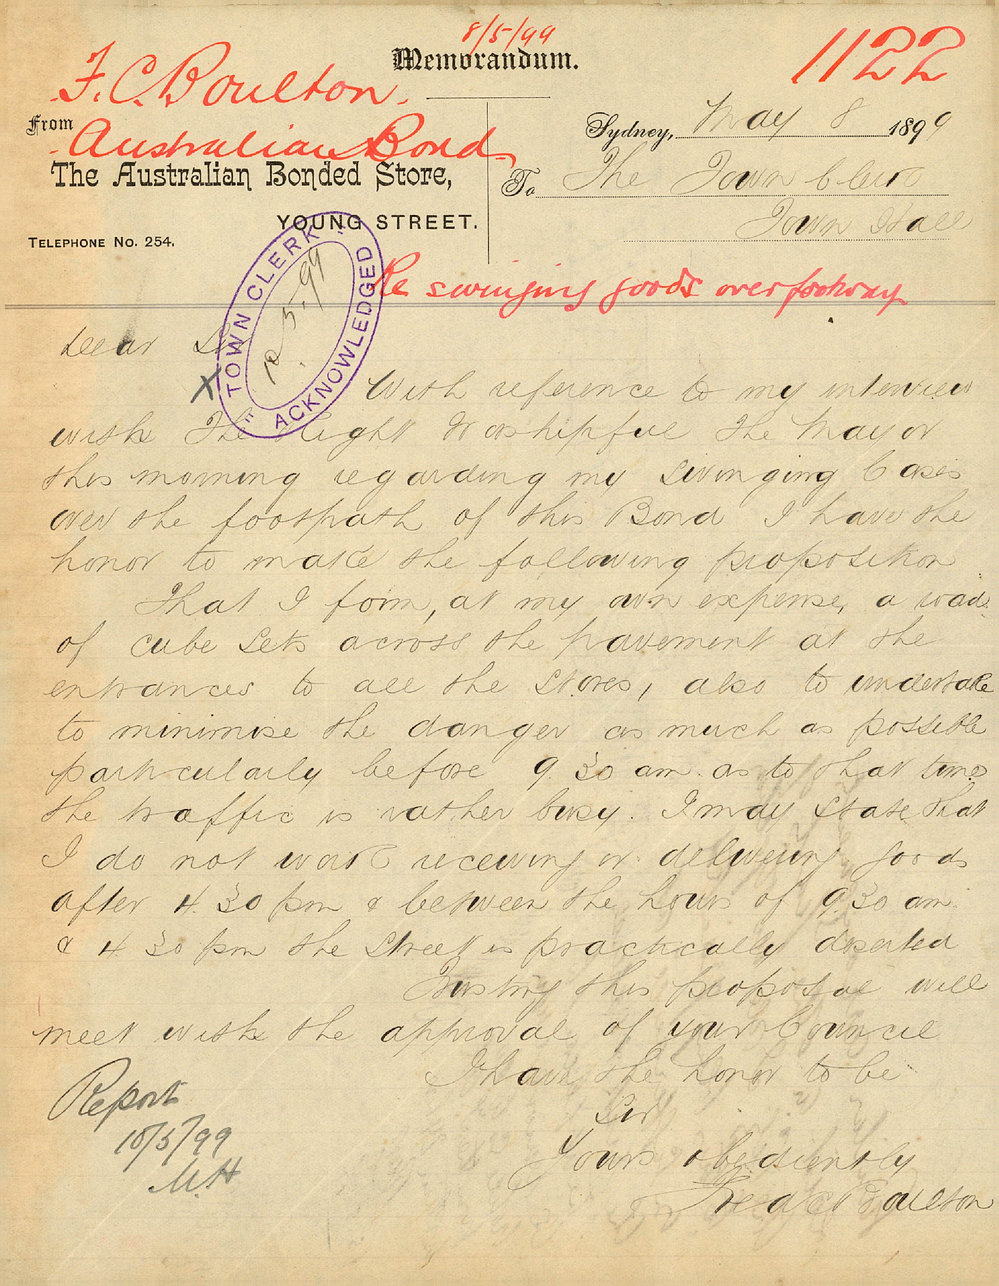 8/5/99
Memorandum.
1122
F. C. Boulton.
From
Australian Bond
The Australian Bonded Store,
YOUNG STREET.
TELEPHONE No. 254.
Sydney, May 8 1899
To The Town Clerk
Town Hall
Re swinging goods over footway
"TOWN CLERK"
10-5-99
"ACKNOWLEDGED"
Dear Sir
X
With reference to my interview
with The Right Worshipful The Mayor
this morning regarding my swinging Cases
over the footpath of this Bond I have the
honor to make the following proposition
That I form, at my own expense, a road
of cube sets across the pavement at the
entrances to all the Stores, also to undertake
to minimise the danger as much as possible
particularly before 9.30 am. as to that time
the traffic is rather busy. I may state that
I do not work receiving or delivering goods
after 4.30 pm & between the hours of 9.30 am.
& 4.30 pm the street is practically deserted
Trusting this proposal will
meet with the approval of your Council
I have the honor to be
Sir
Yours obediently
Fredk C Boulton
Report
10/5/99